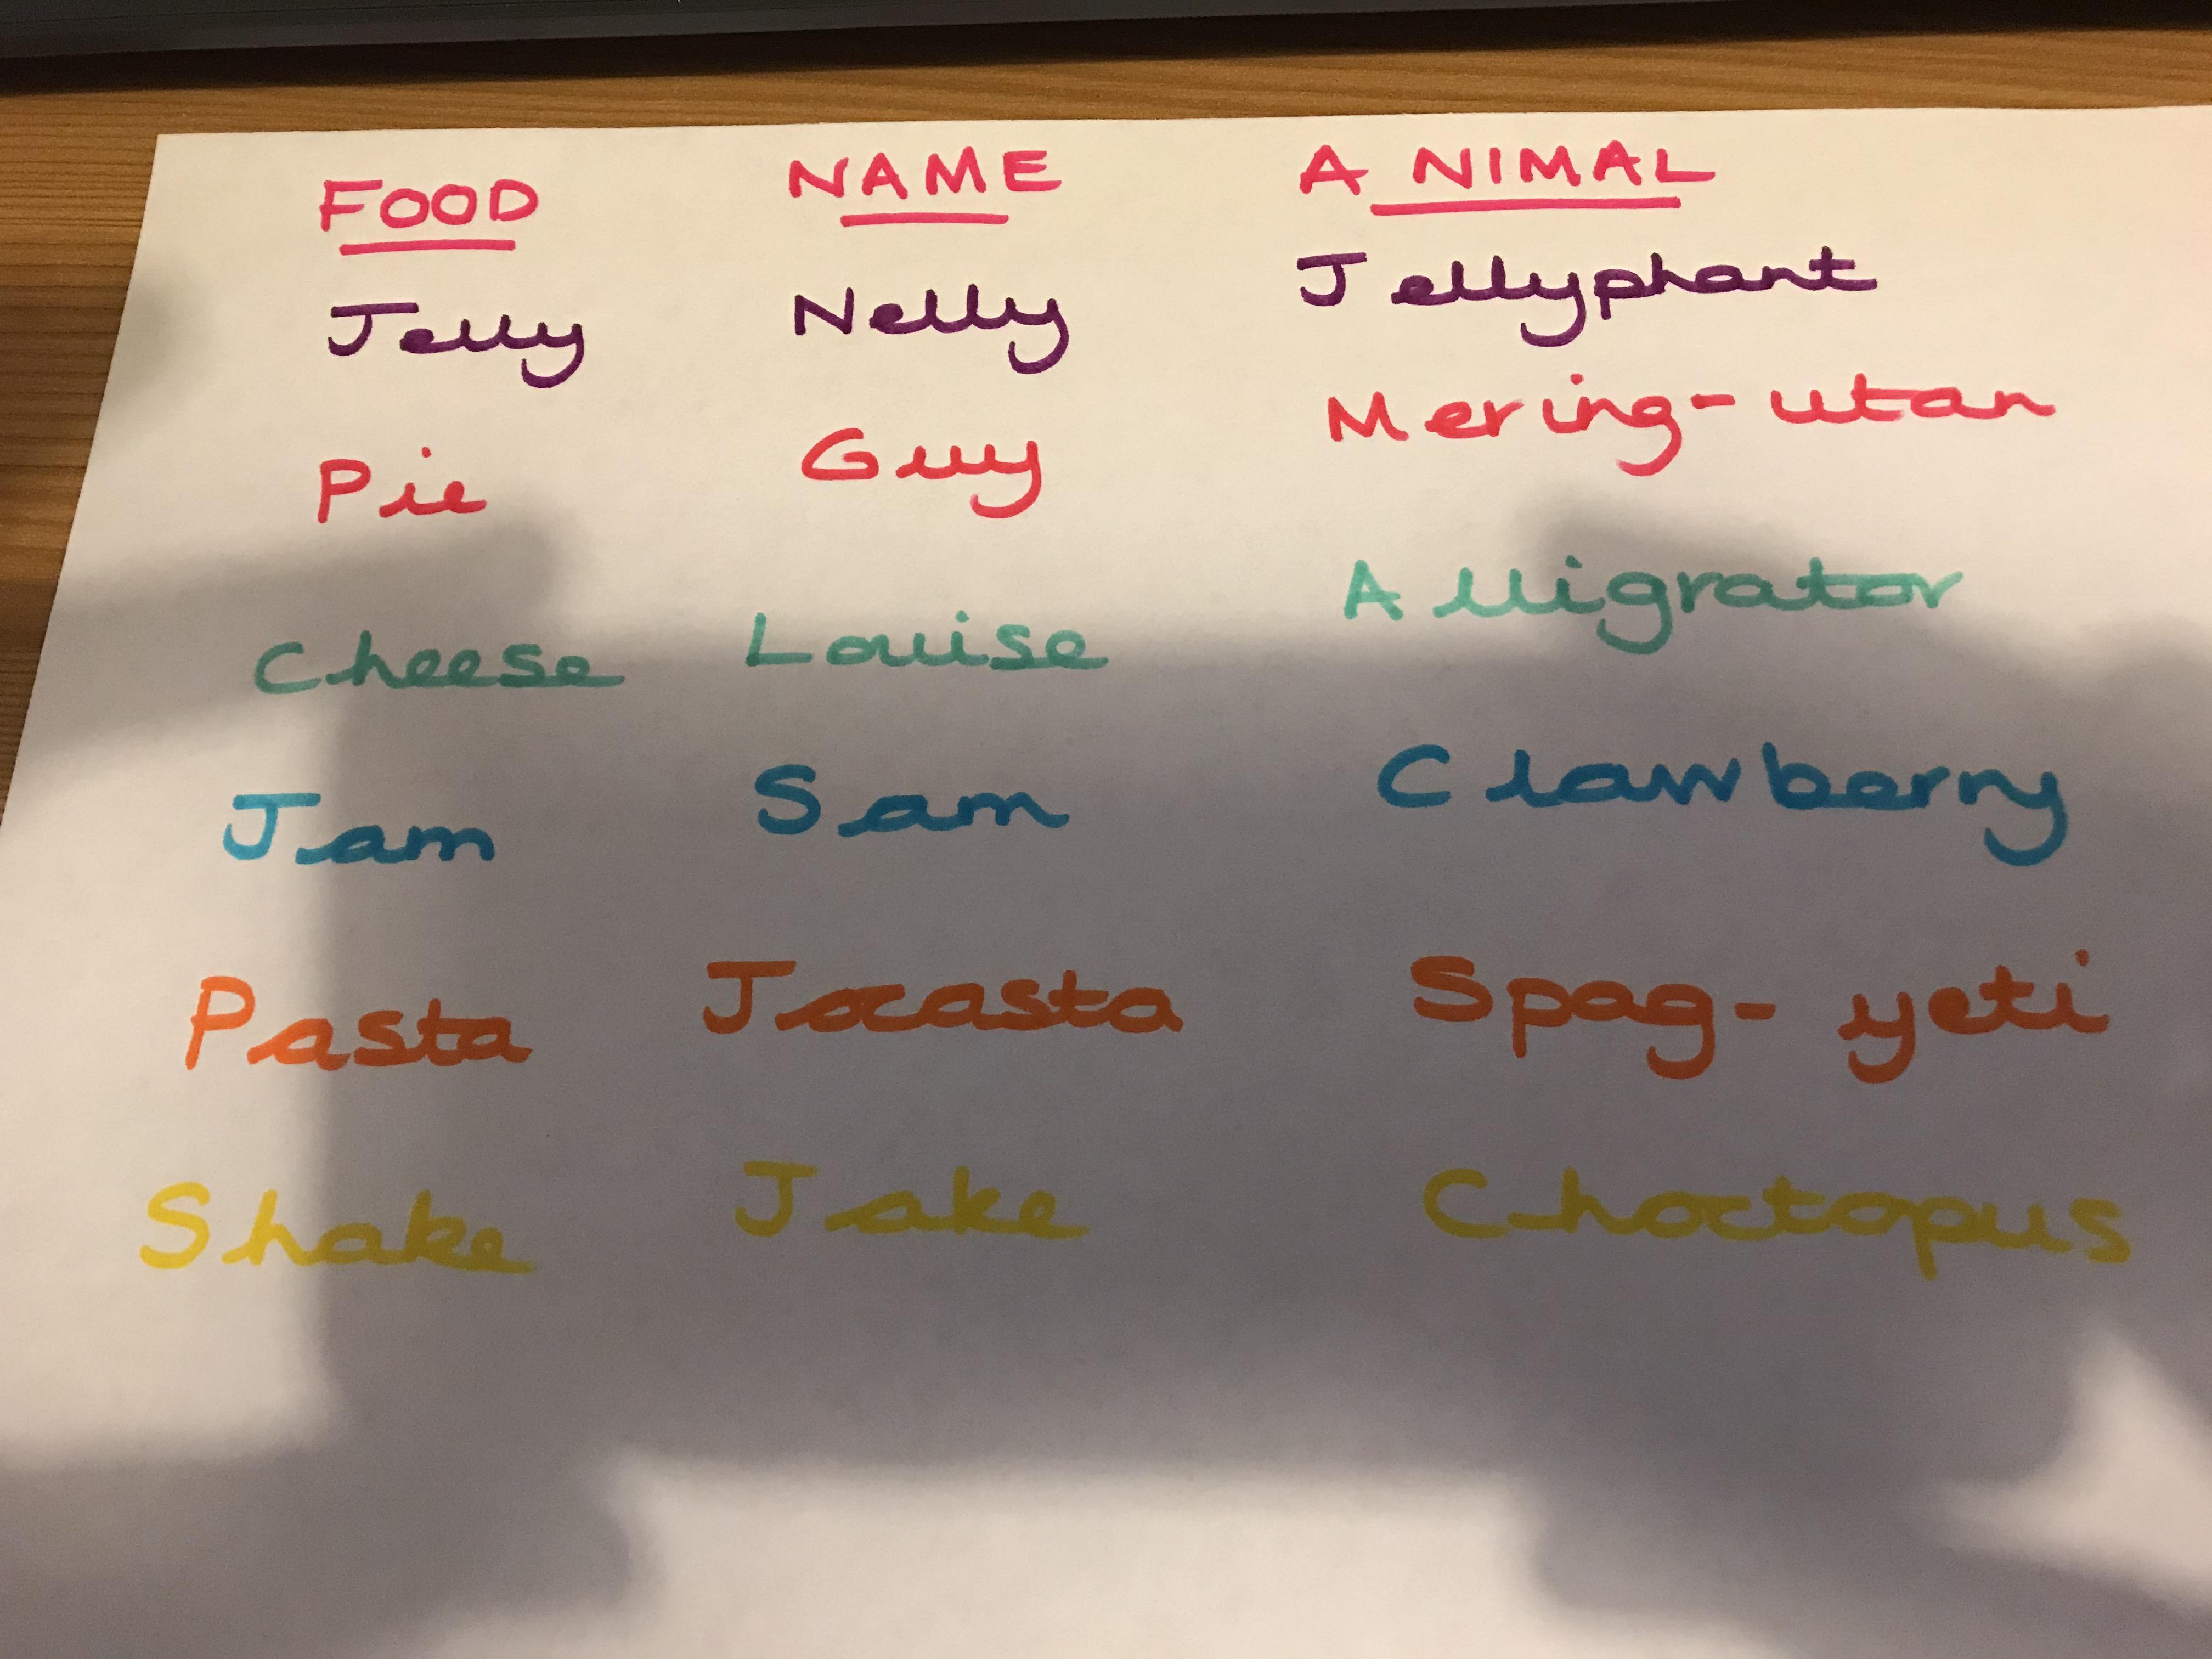 FOOD NAME ANIMAL
Jelly Nelly Jellyphant
Pie Guy Mering-utan
Cheese Louise Alligrator
Jam Sam Clawberry
Pasta Jocasta Spag-yeti
Shake Jake Choctopus